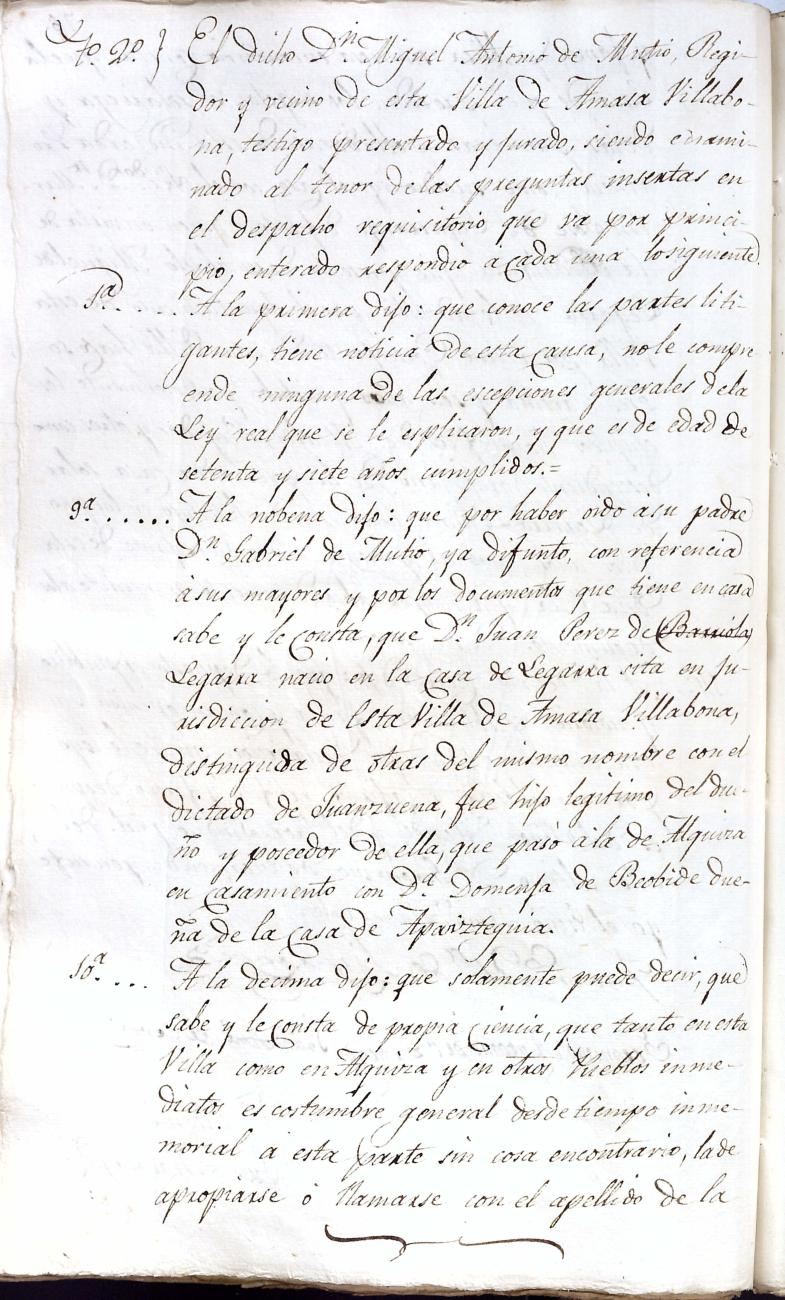 Tº. 2º. } El dicho Dn. Miguel Antonio de Mutio, Regi-
dor y vecino de esta Villa de Amasa Villabo-
na, testigo presentado y jurado, siendo exami-
nado al tenor delas preguntas insertas en
el despacho requisitorio que va por princi-
pio, enterado respondio a cada una losiguiente.
1ª. . . . . A la primera dijo: que conoce las partes liti-
gantes, tiene noticia de esta causa, nole compre
ende ninguna de las escepciones generales dela
Ley real que se le esplicaron, y que es de edad de
setenta y siete años cumplidos.=
9ª. . . . . . A la nobena dijo: que por haber oido à su padre
Dn. Gabriel de Mutio, ya difunto, con referencia
à sus mayores y por los documentos que tiene en casa
sabe y le consta, que Dn. Juan Perez de (Barriola)
Legarra nacio en la casa de Legarra sita en ju-
risdiccion de esta Villa de Amasa Villabona,
distinguida de otras del mismo nombre con el
dictado de Juanzuena, fue hijo legitimo del due-
ño y poseedor de ella, que pasò à la de Alquiza
en casamiento con Dª. Domenja de Beobide due-
ña de la casa de Apaizteguia.
10ª. . . . A la decima dijo: que solamente puede decir, que
sabe y le consta de propia ciencia, que tanto en esta
Villa como en Alquiza y en otros Pueblos inme-
diatos es costumbre general desde tiempo inme-
morial à esta parte sin cosa encontrario, la de
apropiarse ò llamarse con el apellido de la